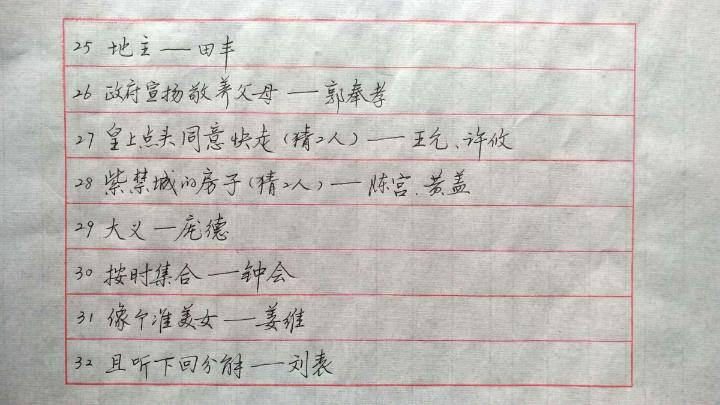 25 地主——田丰
26 政府宣扬敬养父母——郭奉孝
27 皇上点头同意快走(猜2人)——王允、许攸
28 紫禁城的房子(猜2人)——陈宫、黄盖
29 大义——庞德
30 按时集合——钟会
31 像个准美女——姜维
32 且听下回分解——刘表